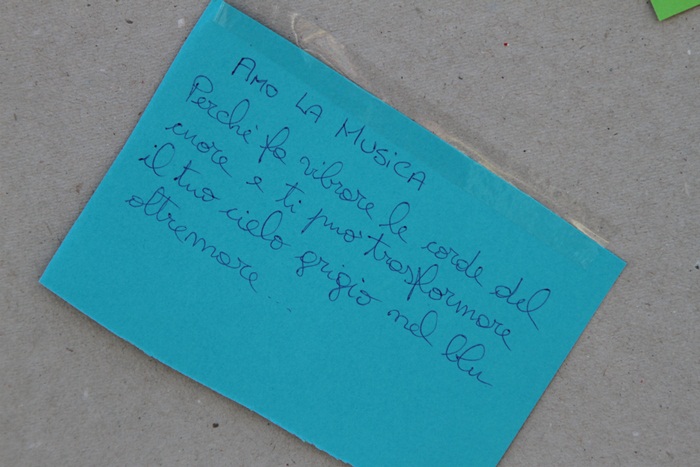 AMO LA MUSICA
Perché fa vibrare le corde del
cuore e ti può trasformare
il tuo cielo grigio nel blu
oltremare...